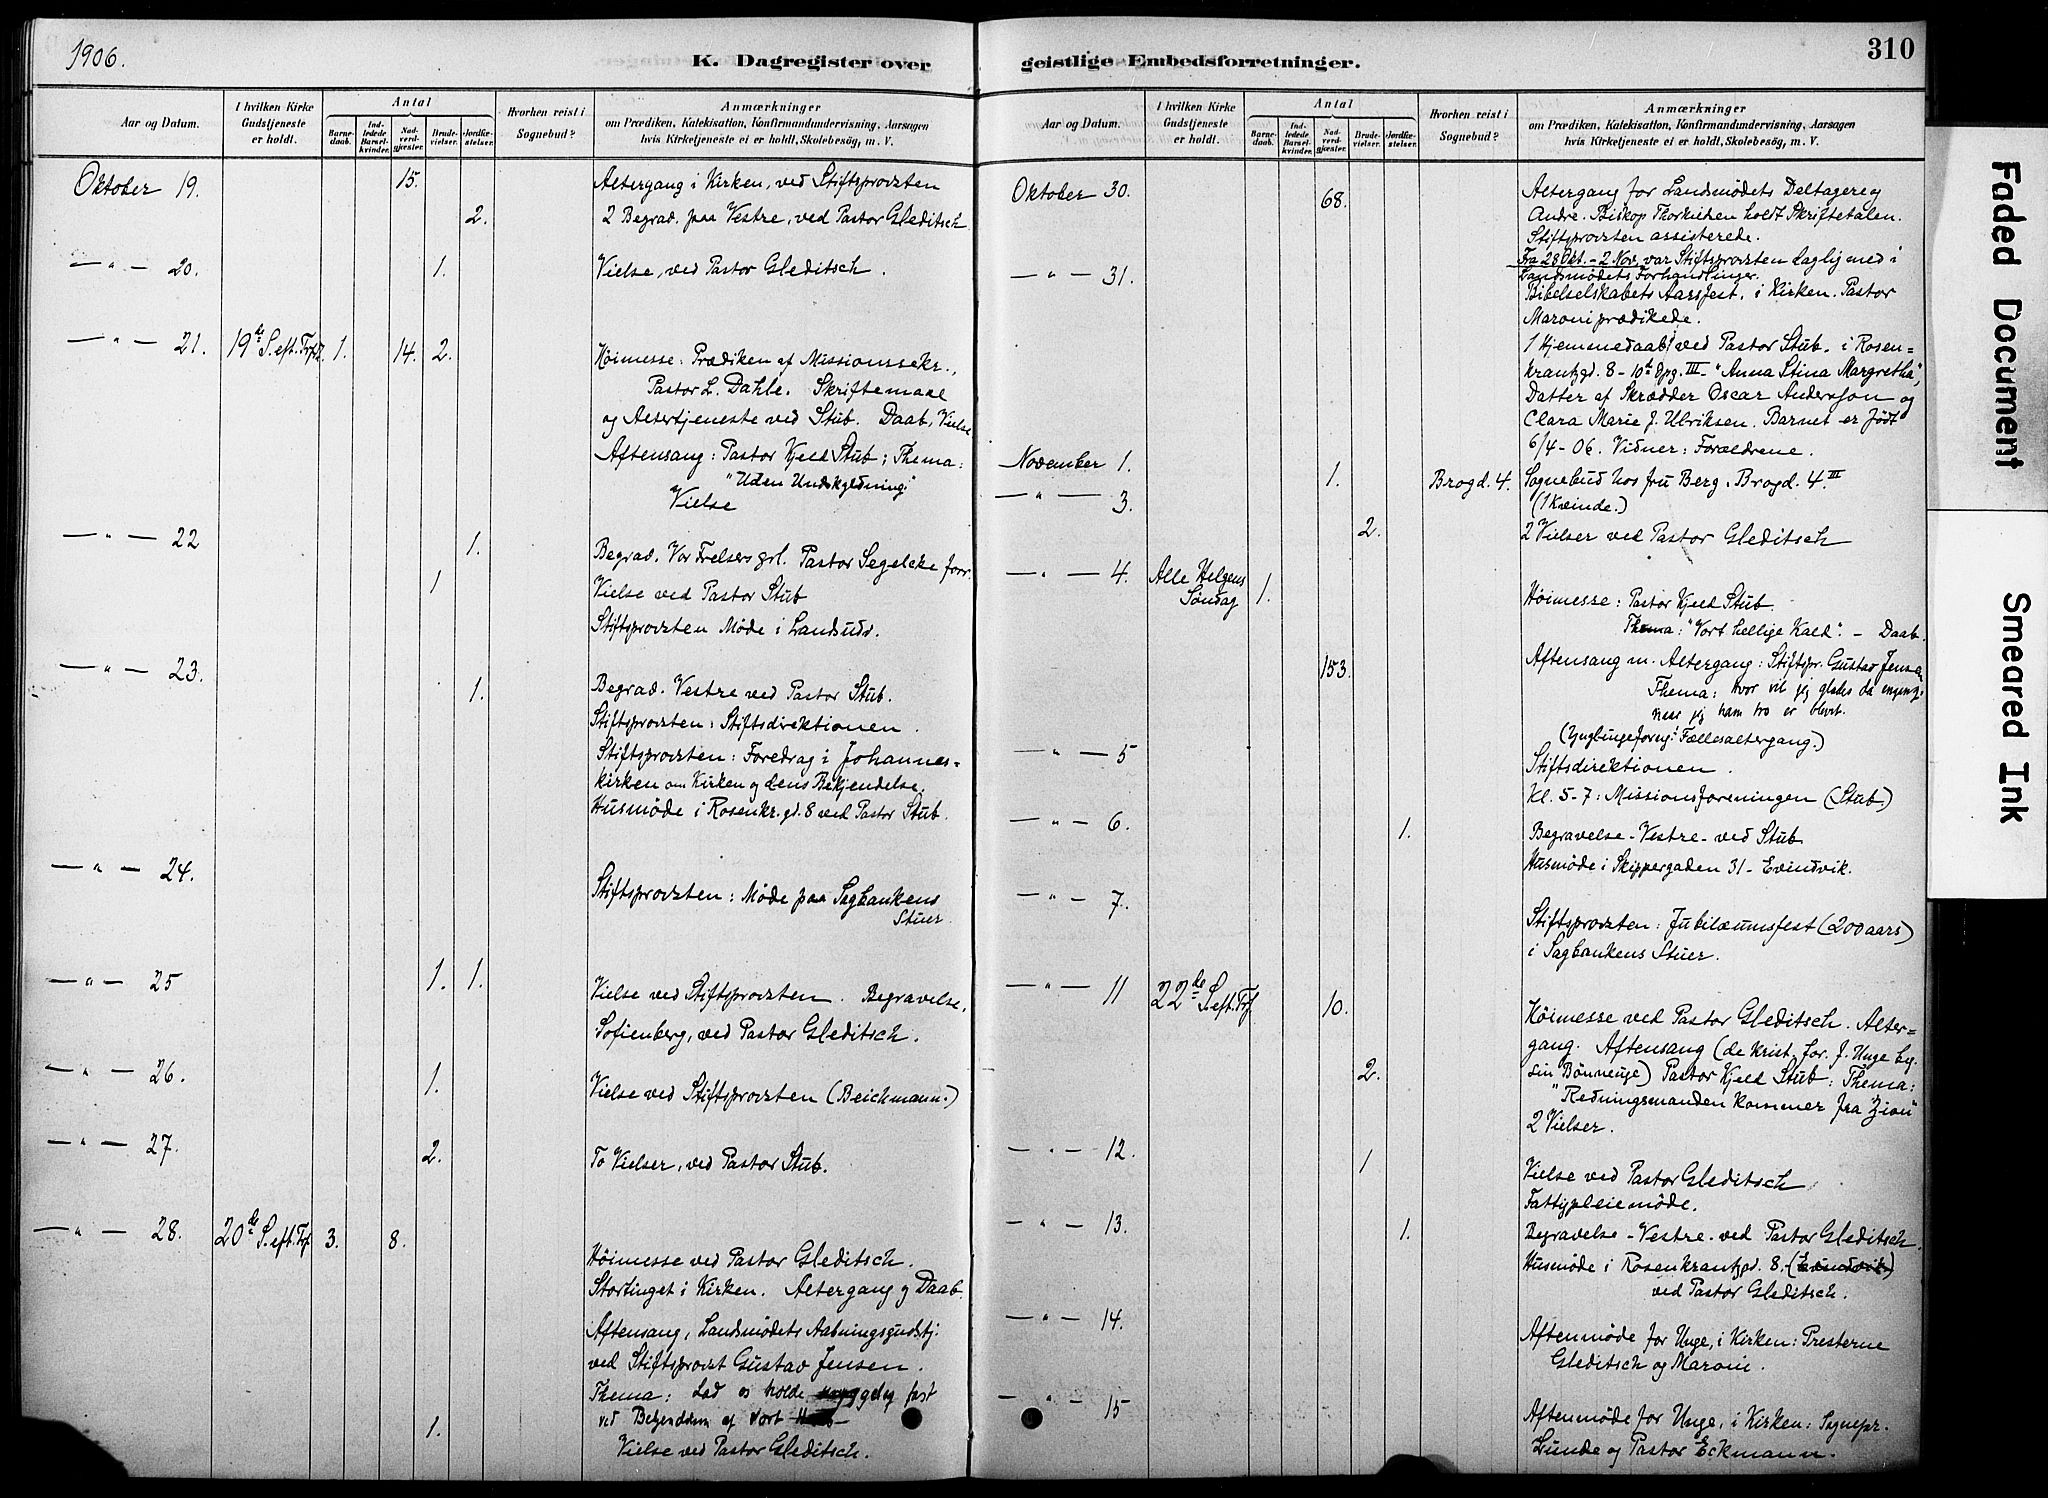 1906.
K. Dagregister over
Aar og Datum.
I hvilken Kirke Gudstjeneste er holdt.
Antal
Barne-daab.
Ind-ledede Barsel-kvinder.
Nad-verd-gjæster.
Brude-vielser.
Jordfæ-stelser.
Hvorhen reist i Sognebud?
Anmærkninger
om Prædiken, Katekisation, Konfirmandundervisning, Aarsagen
hvis Kirketjeneste ei er holdt, Skolebesøg, m. V.
Oktober 19. 15. Altergang i Kirken, ved Stiftsprovsten
2. 2 Begrav. paa Vestre, ved Pastor Gleditsch
— " — 20. 1. Vielse, ved Pastor Gleditsch.
— " — 21. 19de S. eft. Trf. 1. 14. 2.
Høimesse: Prædiken af Missionssekr.,
Pastor L. Dahle. Skriftemaal
og Altertjeneste ved Stub. Daab, Vielse
Aftensang: Pastor Kjeld Stub; Thema:
"Uden Undskyldning."
Vielse
— " — 22 1. Begrav. Vor Frelsers grl. Pastor Segelcke forr.
1 Vielse ved Pastor Stub
Stiftsprovsten Møde i Landsudv.
— " — 23. 1. Begrav. Vestre ved Pastor Stub.
Stiftsprovsten: Stiftsdirektionen.
Stiftsprovsten: Foredrag i Johannes-
kirken om Kirken og dens Bekjendelse.
Husmøde i Rosenkr. gd. 8 ved Pastor Stub.
— " — 24.
Stiftsprovsten: Møde paa Sagbankens
Stuer
— " — 25 1. 1. Vielse ved Stiftsprovsten. Begravelse,
Sofienberg, ved Pastor Gleditsch.
— " — 26. 1. Vielse ved Stiftsprovsten (Beichmann.)
— " — 27. 2. To Vielser, ved Pastor Stub.
— " — 28. 20de S. eft. Trf. 3. 8.
Høimesse ved Pastor Gleditsch.
Stortinget i Kirken. Altergang og Daab.
Aftensang, Landsmødets Aabningsgudstj.
ved Stiftsprovst Gustav Jensen.
Thema: Lad os holde fast
ved Bekjendelsen af vort
1. Vielse ved Pastor Gleditsch.
geistlige Embedsforretninger.
310
Aar og Datum.
I hvilken Kirke Gudstjeneste er holdt.
Antal
Barne-daab.
Ind-ledede Barsel-kvinder.
Nad-verd-gjæster.
Brude-vielser.
Jordfæ-stelser.
Hvorhen reist i Sognebud?
Anmærkninger
om Prædiken, Katekisation, Konfirmandundervisning, Aarsagen
hvis Kirketjeneste ei er holdt, Skolebesøg, m. V.
Oktober 30. 68. Altergang for Landsmødets Deltagere og
Andre. Biskop Thorkildsen holdt Skriftetalen.
Stiftsprovsten assisterede.
Fra 28 Okt. - 2 Nov. var Stiftsprovsten daglig med i
Landsmødets Forhandlinger.
— " — 31. Bibelselskabets Aarsfest, i Kirken. Pastor
Maroni prædikede.
1 Hjemmedaab ved Pastor Stub. i Rosen-
krantzgd. 8 - 10de Opg. III - "Anna Stina Margretha",
Datter af Skrædder Oscar Andersson og
Clara Marie J. Ulriksen. Barnet er født
6/4 - 06. Vidner: Forældrene.
November 1. 1. Brogd. 4. Sognebud hos fru Berg. Brogd. 4 III
(1 Kvinde.)
— " — 3. 2. 2 Vielser ved Pastor Gleditsch
— " — 4. Alle Helgens Søndag 1. Høimesse: Pastor Kjeld Stub.
Thema: "Vort hellige Kald". - Daab.
153. Aftensang m. Altergang: Stiftspr. Gustav Jensen
Thema: hvor vil jeg glædes da engang,
naar jeg ham tro er blevet.
(Ynglingeforen: Fællesaltergang.)
— " — 5 Stiftsdirektionen.
Kl. 5-7: Missionsforeningen (Stub.)
— " — 6. 1. Begravelse - Vestre - ved Stub
Husmøde i Skippergaden 31 - Evindvik.
— " — 7.
Stiftsprovsten: Jubilæumsfest (200 aars)
i Sagbankens Stuer.
— " — 11 22de S. eft. Trf. 10. Høimesse ved Pastor Gleditsch. Alter-
gang. Aftensang (de krist. for. f. Unge beg.
2. sin Bønneuge) Pastor Kjeld Stub: Thema:
"Redningsmanden kommer fra Zion"
2 Vielser.
— " — 12. 1 Vielse ved Pastor Gleditsch
Fattigpleiemøde.
— " — 13. 1. Begravelse - Vestre - ved Pastor Gleditsch.
Husmøde i Rosenkrantzgd. 8. (Evindvik)
ved Pastor Gleditsch.
— " — 14.
Aftenmøde for Unge, i Kirken: Presterne
Gleditsch og Maroni.
— " — 15
Aftenmøde for Unge, i Kirken: Sognepr.
Lunde og Pastor Eckmann.
Faded Document
Smeared Ink